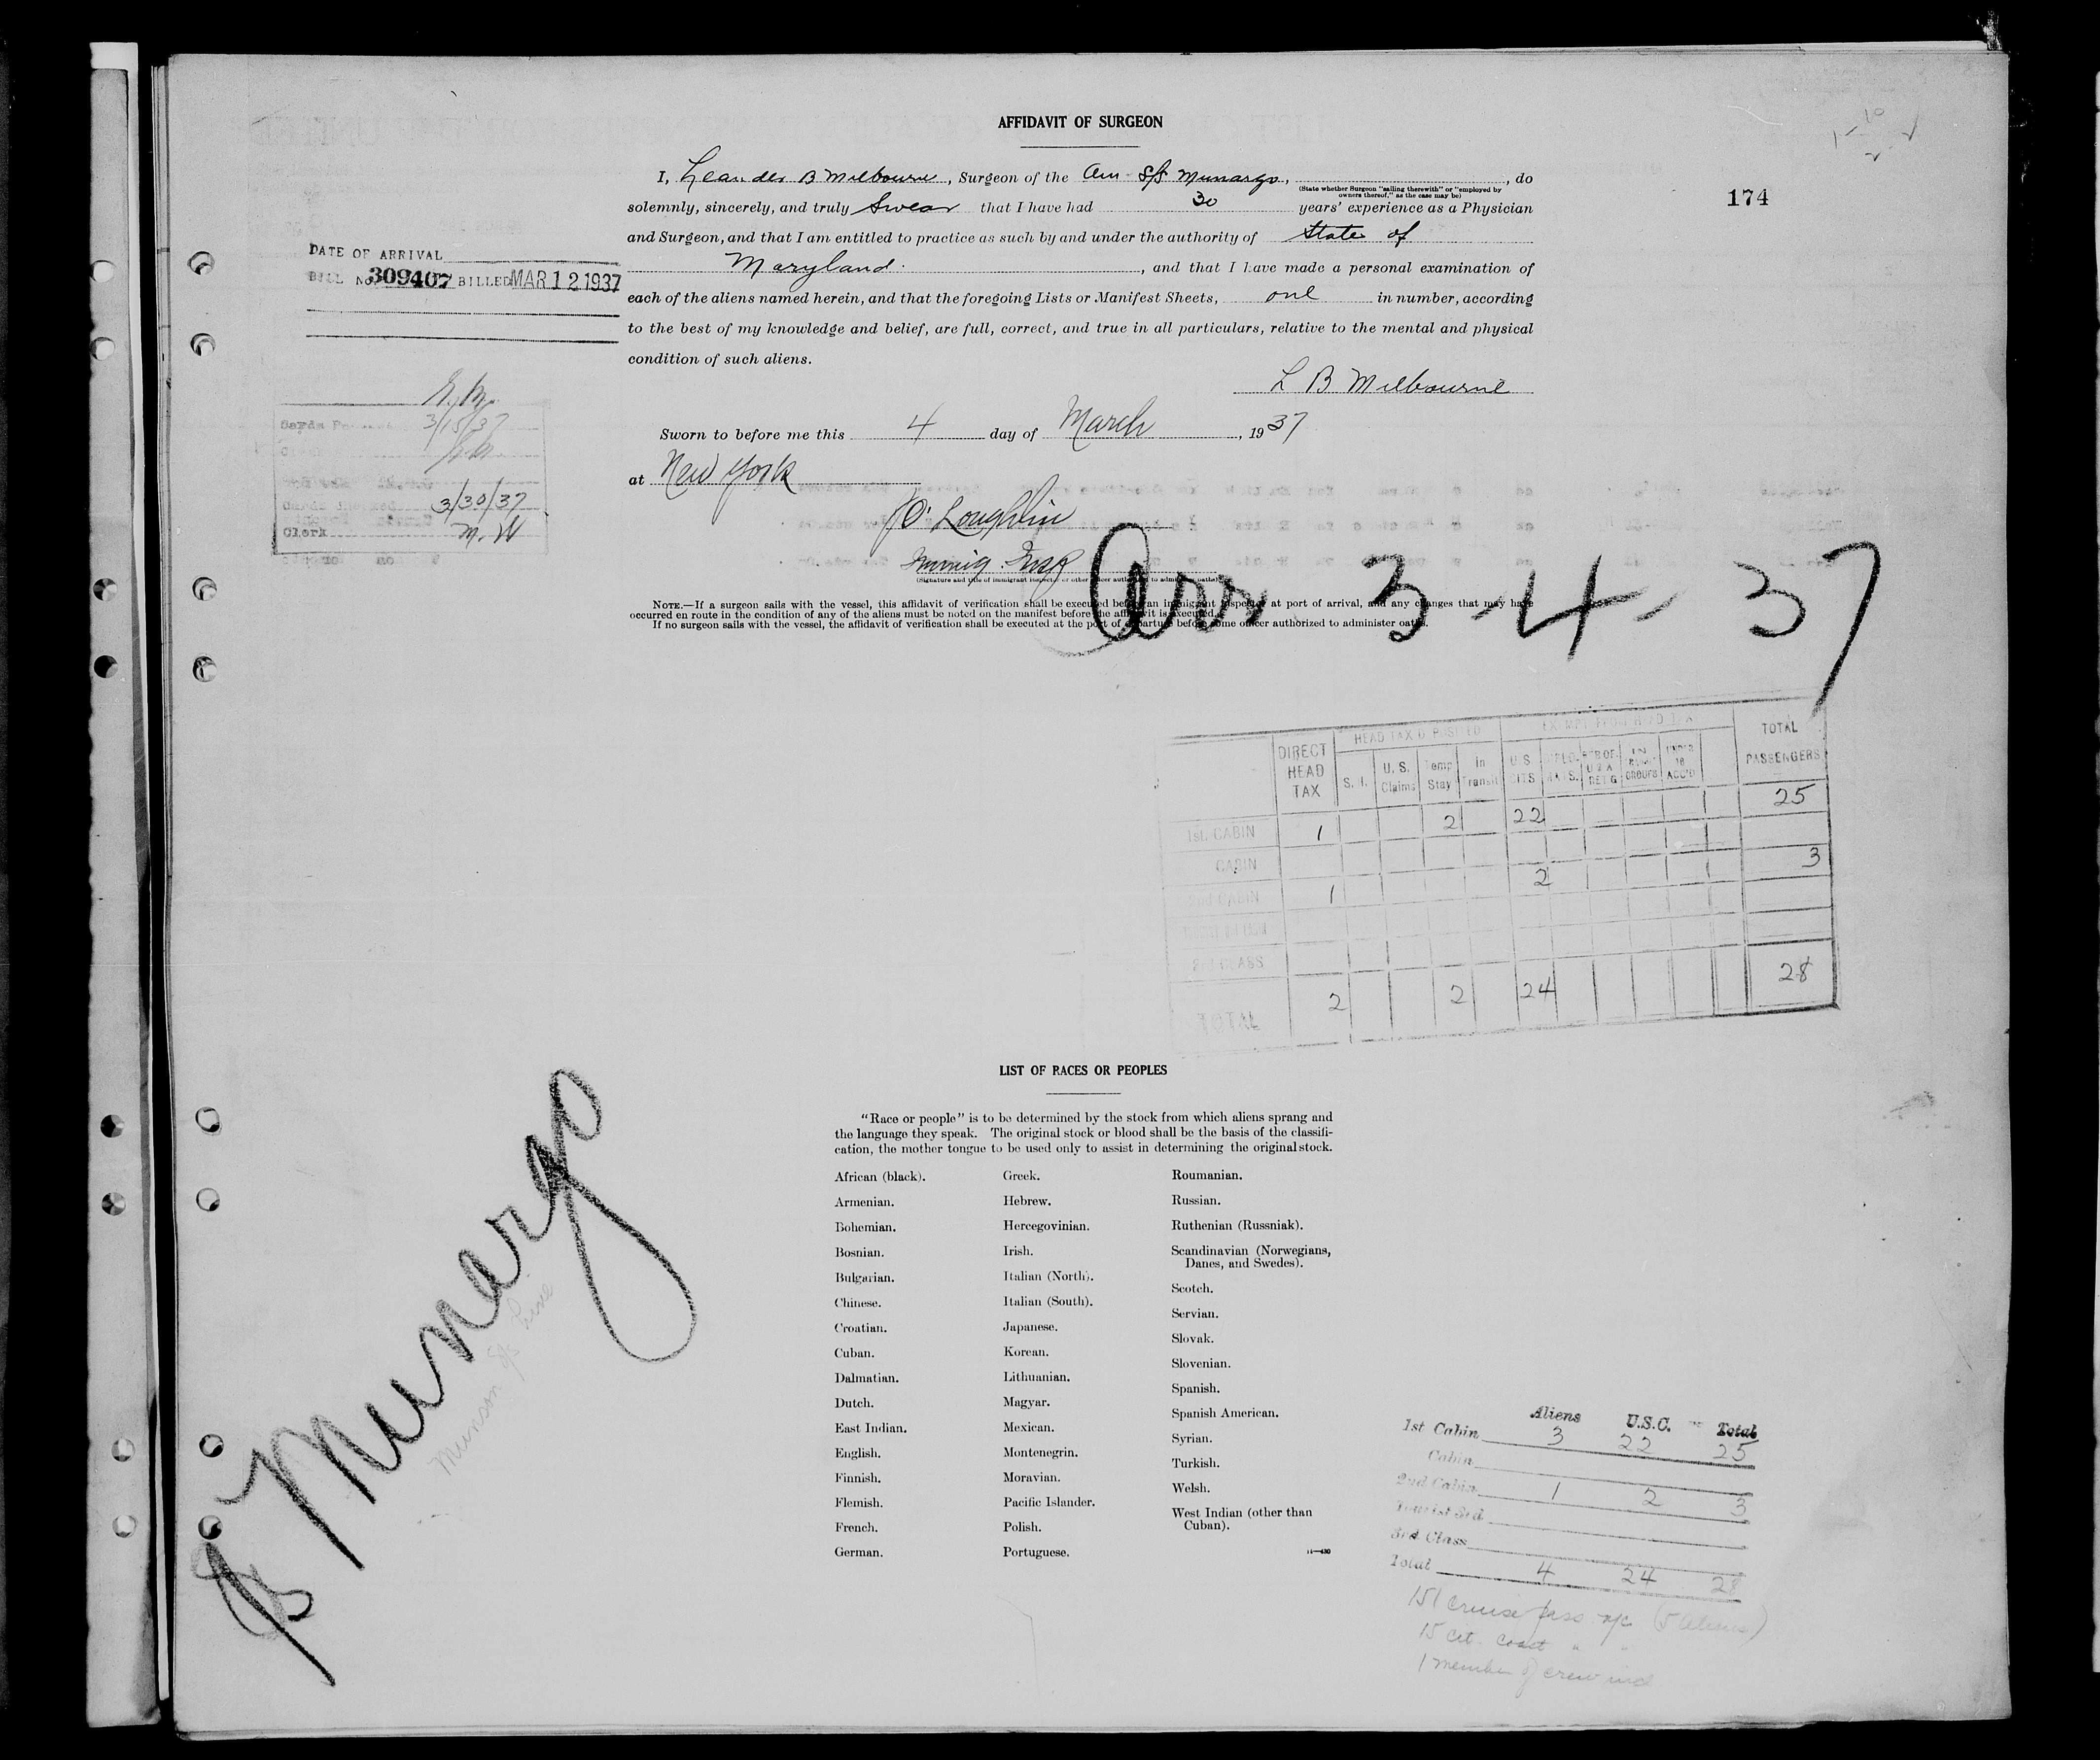 AFFIDAVIT OF SURGEON
174
I, Leander B Milbourne, Surgeon of the Am S/S Munargo, , do
(State whether Surgeon "sailing therewith" or "employed by owners thereof," as the case may be)
solemnly, sincerely, and truly Swear that I have had 30 years' experience as a Physician
and Surgeon, and that I am entitled to practice as such by and under the authority of State of
Maryland. , and that I have made a personal examination of
each of the aliens named herein, and that the foregoing Lists or Manifest Sheets, one in number, according
to the best of my knowledge and belief, are full, correct, and true in all particulars, relative to the mental and physical
condition of such aliens.
L B Milbourne
Sworn to before me this 4 day of March , 1937
at New York
O'Loughlin
Immig. Insp
(Signature and title of immigrant inspector or other officer authorized to administer oaths)
NOTE.—If a surgeon sails with the vessel, this affidavit of verification shall be executed before an immigrant inspector at port of arrival, and any changes that may have
occurred en route in the condition of any of the aliens must be noted on the manifest before the affidavit is executed.
If no surgeon sails with the vessel, the affidavit of verification shall be executed at the port of departure before some officer authorized to administer oaths.
DATE OF ARRIVAL
BILL No 309407 BILLED MAR 12 1937
3/15/37
3/30/37
Clerk M. W
Arr 3-4-37
HEAD TAX DEPOSITED EXEMPT FROM HEAD TAX
DIRECT HEAD TAX U. S. Claims Temp Stay In Transit U.S. CITS TOTAL PASSENGERS
1st. CABIN 1 2 22 25
CABIN
2nd CABIN 1 2 3
3rd CLASS
TOTAL 2 2 24 28
LIST OF RACES OR PEOPLES
"Race or people" is to be determined by the stock from which aliens sprang and
the language they speak. The original stock or blood shall be the basis of the classifi-
cation, the mother tongue to be used only to assist in determining the original stock.
African (black).
Armenian.
Bohemian.
Bosnian.
Bulgarian.
Chinese.
Croatian.
Cuban.
Dalmatian.
Dutch.
East Indian.
English.
Finnish.
Flemish.
French.
German.
Greek.
Hebrew.
Hercegovinian.
Irish.
Italian (North).
Italian (South).
Japanese.
Korean.
Lithuanian.
Magyar.
Mexican.
Montenegrin.
Moravian.
Pacific Islander.
Polish.
Portuguese.
Roumanian.
Russian.
Ruthenian (Russniak).
Scandinavian (Norwegians,
Danes, and Swedes).
Scotch.
Servian.
Slovak.
Slovenian.
Spanish.
Spanish American.
Syrian.
Turkish.
Welsh.
West Indian (other than
Cuban).
S/S Munargo
Munson S/S Line
Aliens U.S.C. Total
1st Cabin 3 22 25
Cabin
2nd Cabin 1 2 3
Tourist 3rd
3rd Class
Total 4 24 28
151 cruise pass o/c (5 Aliens)
15 cit. coast " "
1 member of crew incl